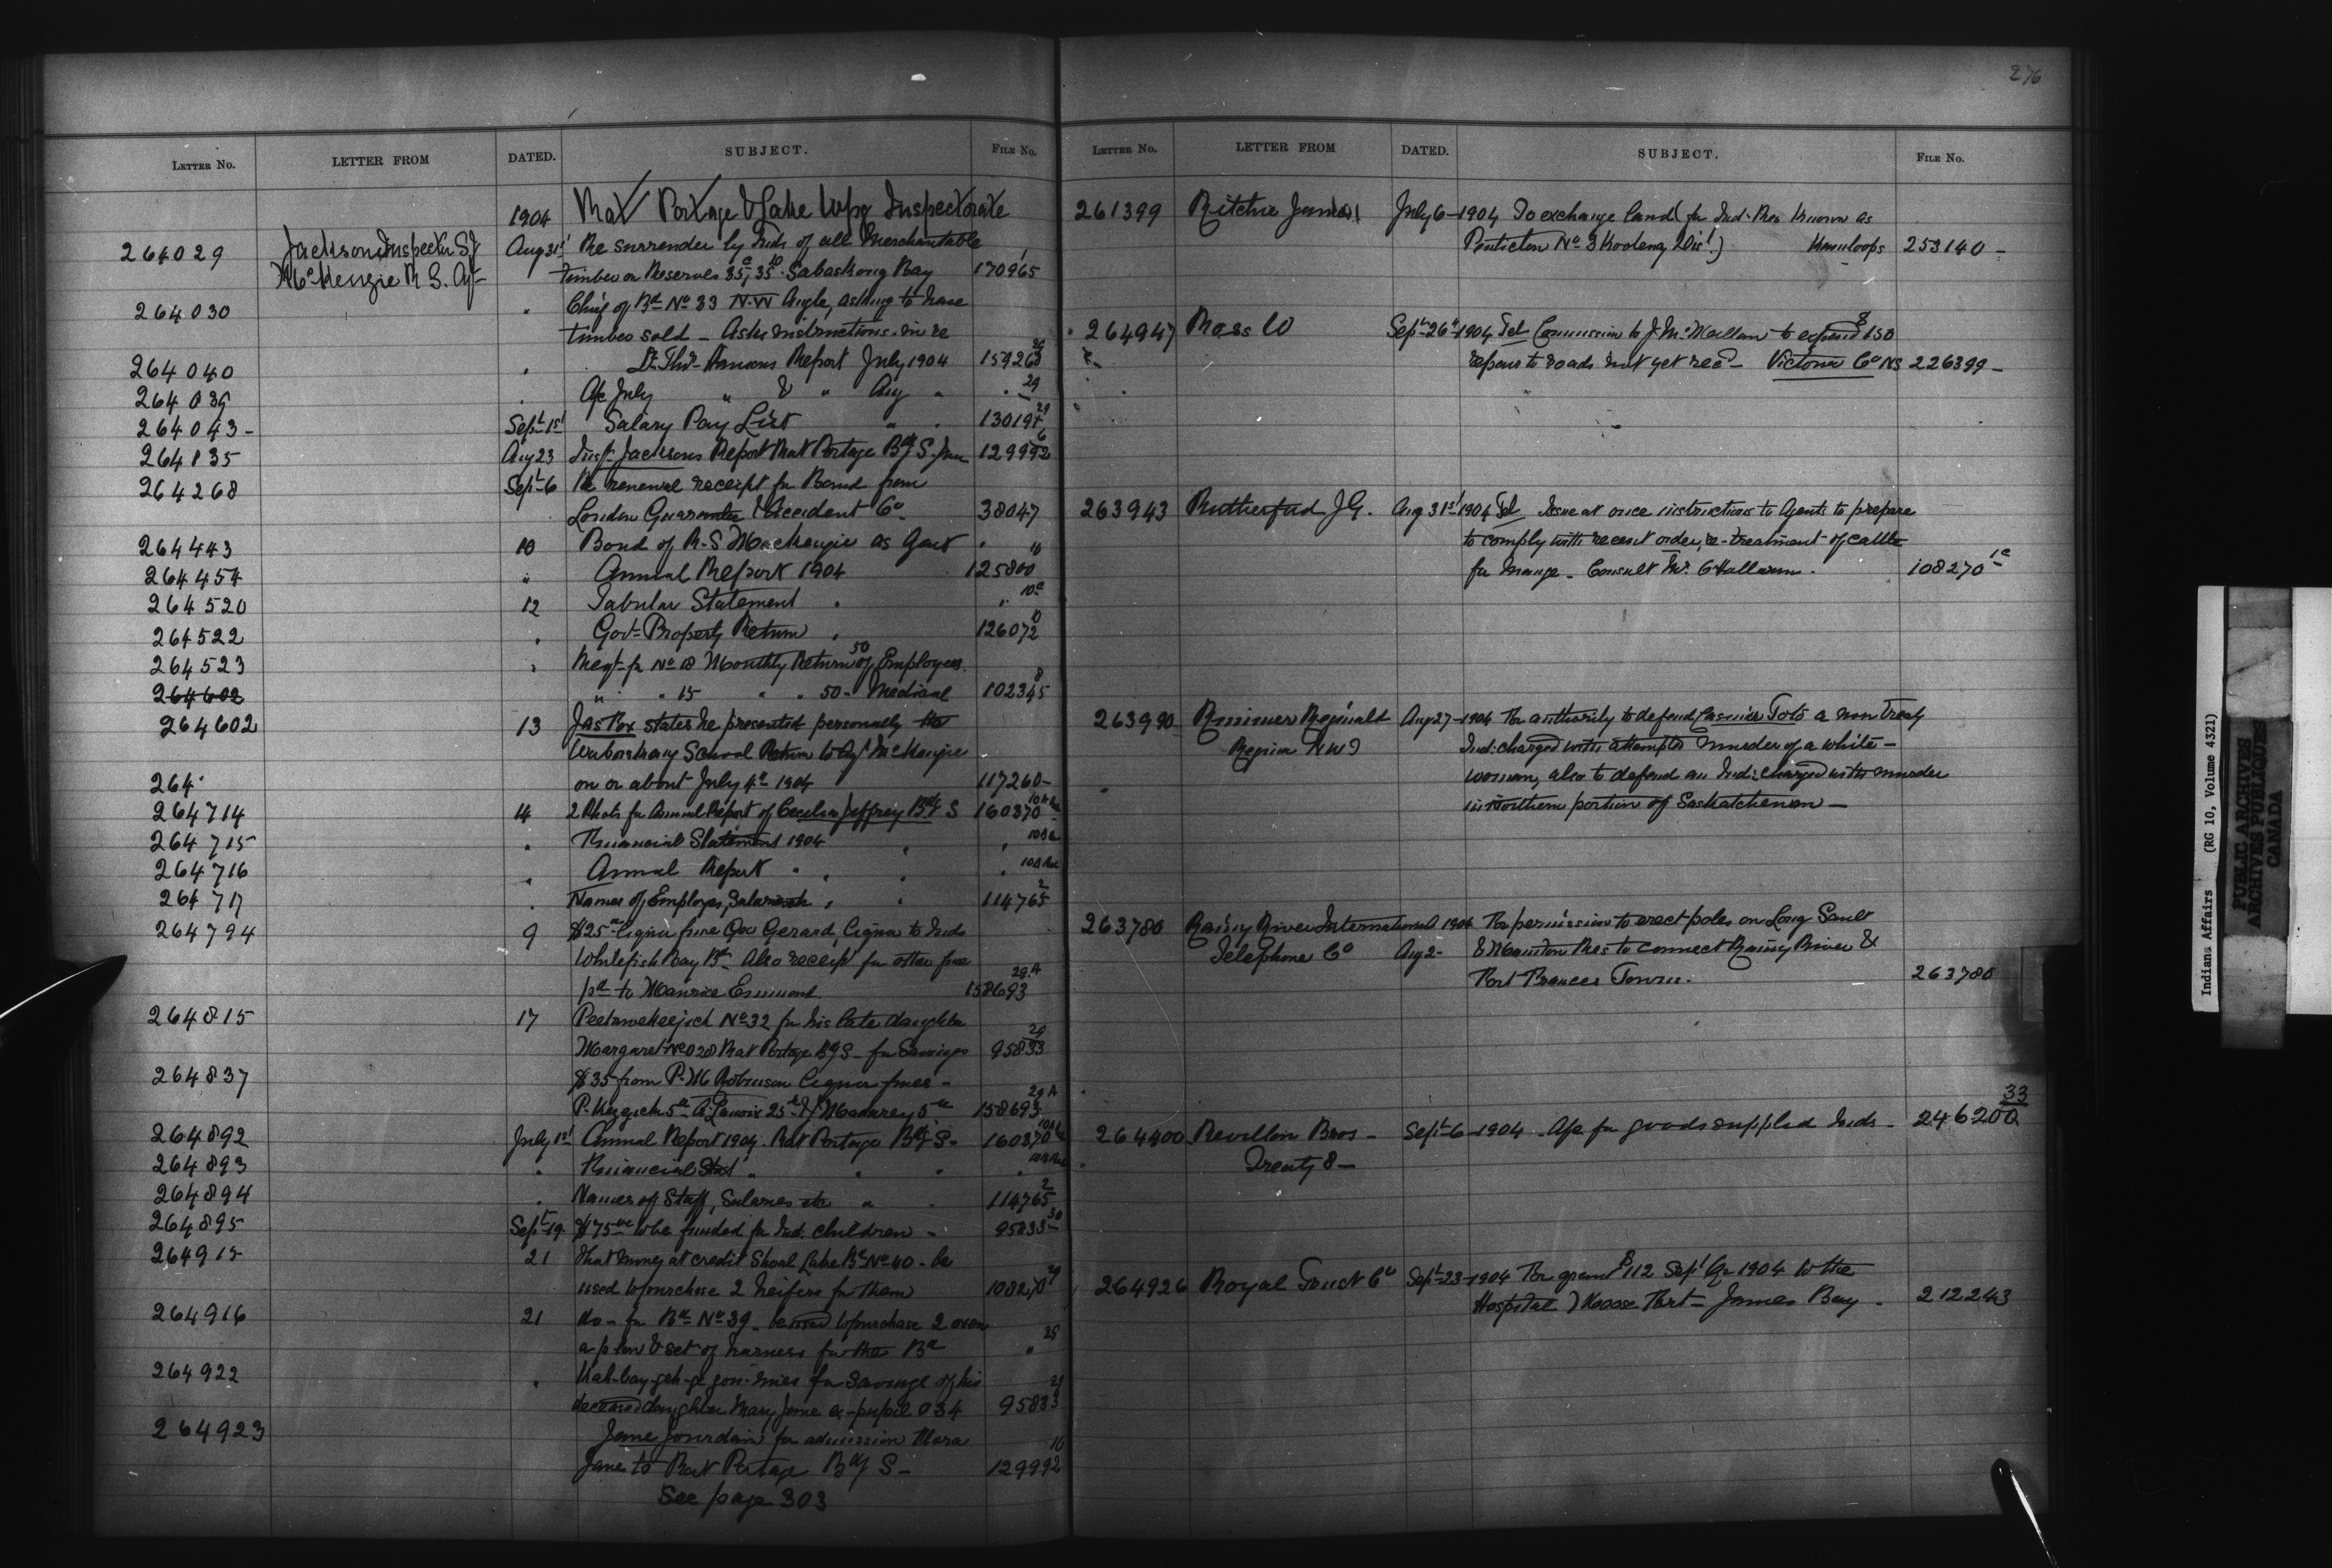 276
LETTER NO. LETTER FROM DATED. SUBJECT. FILE No.
1904 Rat Portage & Lake Wpg Inspectorate
264029 Jackson Inspector S J Aug 31st Re surrender by Inds of all Merchantable
McKenzie R S. Agt timber on Reserves 35c, 35 Sabaskong Bay 170965
264030 " Chief of Bd No 33 N.W Angle, asking to have
timber sold - Asks instructions in re
264040 Dr Thos Hansons Report July 1904 159263
264039 A/c July " & " Aug " 29
264043 - Sept 1st Salary Pay List " 130197 29
264135 Aug 23 Insp. Jacksons Report Rat Portage Bdg S. June 129992 6
264268 Sept 6 Re renewal receipt for Bond from
London Guarantee & Accident Co 38047
264443 10 Bond of R.S Mackenzie as Agent "
264454 " Annual Report 1904 125800 10
264520 12 Tabular Statement " " 10a
264522 " Govt Property Return " 126072 10
264523 " Reqt for No 18 Monthly Return 50 of Employees.
264602 " " 15 " " 50 - Medical 102345 8
264602 13 Jas Box states he presented personally the
School Return to Agt McKenzie
on or about July 4th 1904 117260 -
264
264714 14 2 Photos for Annual Report of Cecilia Jeffrey Bdg S 160370
264715 " Financial Statement 1904 "
264716 " Annual Report " "
264717 " Names of Employes, Salaries etc " 114765 2
264794 9 $25 Liquor fine Geo Gerard, Liquor to Inds
Whitefish Bay Bd. Also receipt for other fine
pd to Maurice 158693 29A
264815 17 Peetawekeejick No 32 for his late daughter
Margaret No 028 Rat Portage Bdg S - for Savings 95833 29
264837 $35 from P. M Robinson Liquor fines -
P. Kegick 5 A. Lavoix 25 & J. 5 158693 29A
264892 July 1st Annual Report 1904. Rat Portage Bdg S - 160370
264893 " Financial Stat " "
264894 " Names of Staff, Salaries etc " 114765 2
264895 Sept 19 $75 to be funded for Ind. children - 95833 30
264915 21 That money at credit Shoal Lake Bd No 40 - be
used to purchase 2 heifers for them 108270 29
264916 21 do - for Bd No 39 - be used to purchase 2 oxen
a plow & set of harness for the Bd " 25
264922 " for Savings of his
deceased daughter Mary Jane ex-pupil 034 95833 29
264923 Jane Jourdain for admission Clara
Jane to Rat Portage Bdg S - 129992 10
See page 303
LETTER NO. LETTER FROM DATED. SUBJECT. FILE No.
261399 Ritchie James July 6 - 1904 To exchange land (for Ind. Res known as
Penticton No 3 Kootenay Dist) Kamloops 253140 -
264947 Ross W Sept 26th 1904 Tel Commission to J. McMillan to expend $150
repairs to roads not yet recd - Victoria Co NS 226399 -
263943 Rutherford J G. Aug 31st 1904 Tel Issue at once instructions to Agents to prepare
to comply with recent order, re-treatment of cattle
for Mange - Consult Mr. O'Halloran. 108270 1a
263990 Rimmer Reginald Aug 27 - 1904 For authority to defend Toto a non Treaty
Regina NWT Ind. charged with attempted murder of a white -
woman, also to defend an Ind: charged with murder
in Northern portion of Saskatchewan -
263780 Rainy River International 1904 For permission to erect poles on Long Sault
Telephone Co Aug 2 - & Manitou Res to connect Rainy River &
Fort Frances Towns. 263780
264400 Revillon Bros - Sept 6 - 1904 - A/c for goods supplied Inds - 246200 33
Treaty 8 -
264926 Royal Trust Co Sept 23 - 1904 For grant $112 Sept Qr 1904 to the
Hospital Moose Fort - James Bay - 212243
Indian Affairs (RG 10, Volume 4321)
PUBLIC ARCHIVES
ARCHIVES PUBLIQUES
CANADA